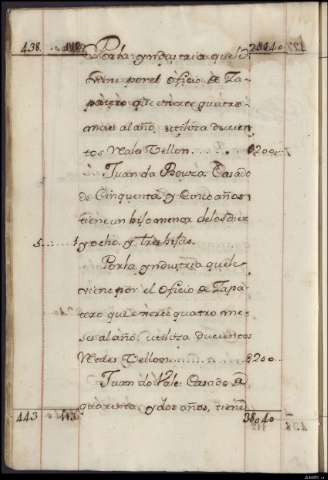 438
Por la yndustria que le
viene por el oficio de Za-
patero que ejerce quatro
meses al año, utiliza ducien-
tos Reales Vellon . . . . . . 200
Juan da Bouza Casado
de Cinquenta y Cinco años
tiene un hijo menor de los diez
5 . . . . y ocho y tres hijas.
Por la yndustria que le
viene por el oficio de Zapa-
tero que ejerce quatro me-
ses al año, utiliza ducientos
Reales Vellon . . . . . . 200
Juan do Vale Casado de
quarenta y dos años, tiene
443 3040